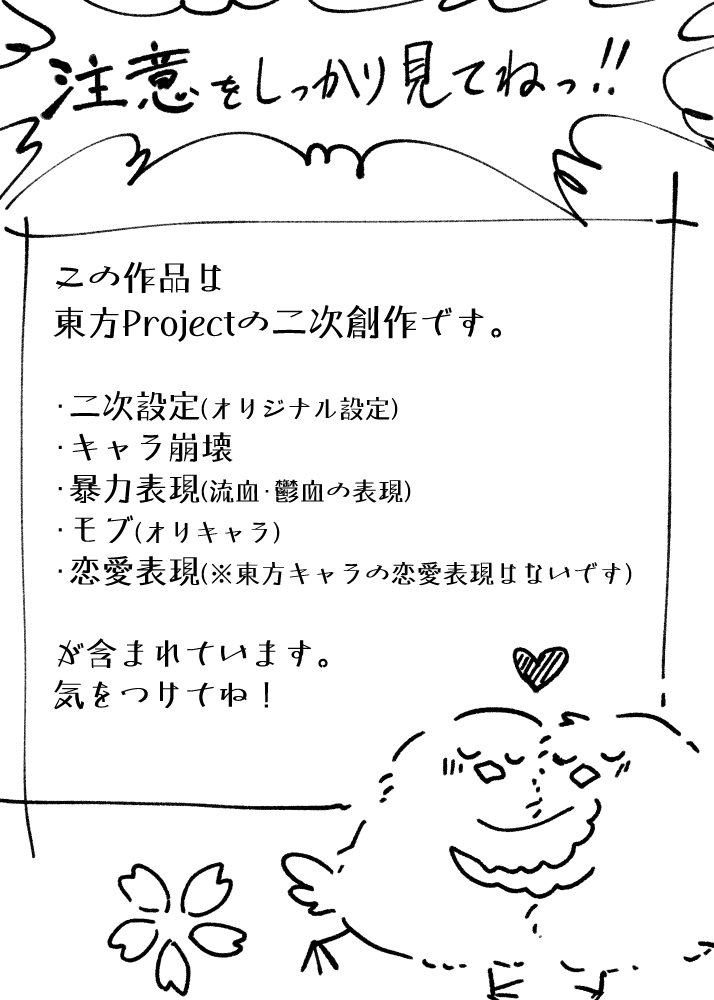 注意をしっかり見てねっ!!
この作品は
東方Projectの二次創作です。
・二次設定(オリジナル設定)
・キャラ崩壊
・暴力表現(流血・鬱血の表現)
・モブ(オリキャラ)
・恋愛表現(※東方キャラの恋愛表現はないです)
が含まれています。
気をつけてね！